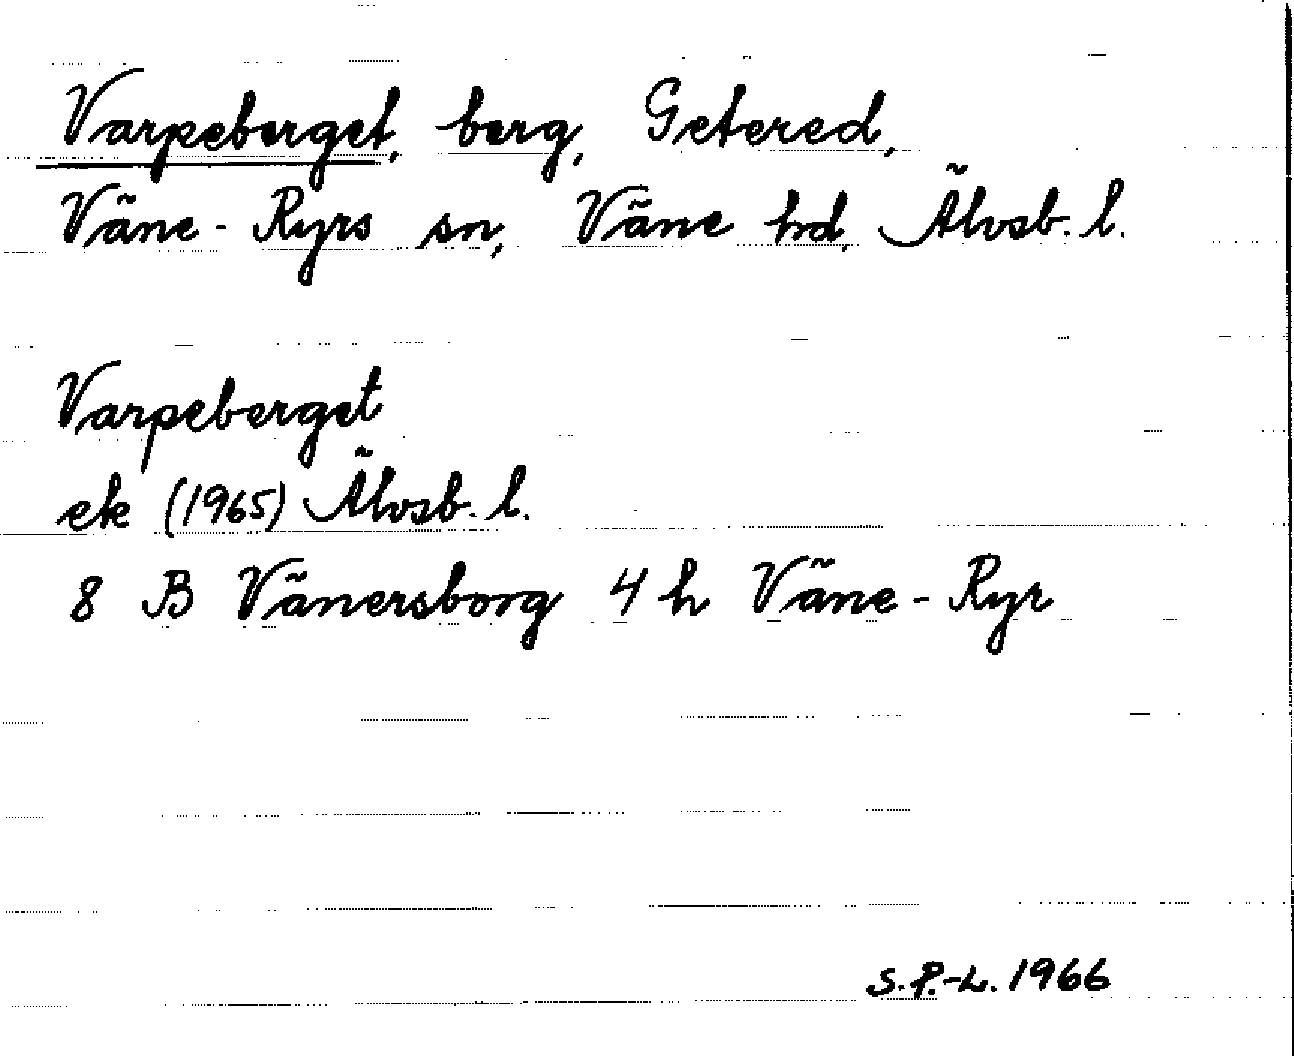 Varpeberget, berg, Getered,
Väne-Ryrs sn, Väne hd, Älvsb. l.
Varpeberget
ek (1965) Älvsb. l.
8 B Vänersborg 4 h Väne-Ryr
S.P.-L. 1966